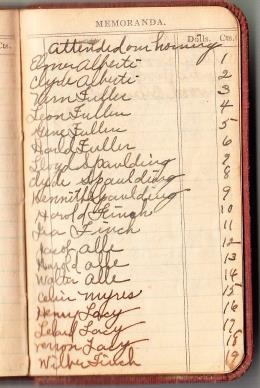 MEMORANDA.
Dolls. Cts.
Cts.
attended our homing
Elmer Alberti 1
Clyde Alberti 2
Vern Fuller 3
Leon Fuller 4
Gene Fuller 5
Harld Fuller 6
Lloyd Spaulding 7
Clyde Spaulding 8
Kenneth Spaulding 9
Harold Finch 10
Ira Finch 11
Jacob Alle 12
Harold Alle 13
Walter Alle 14
Calvin Myres 15
Henry Lacy 16
Leland Lacy 17
Vernon Lacy 18
Wilber Finch 19